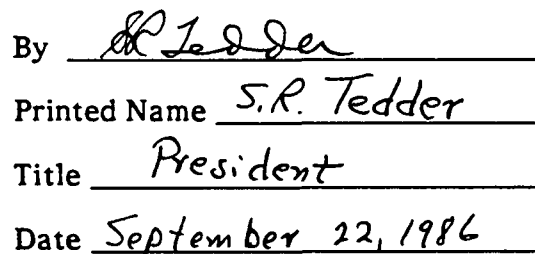 By SR Tedder
Printed Name S.R. Tedder
Title President
Date September 22, 1986